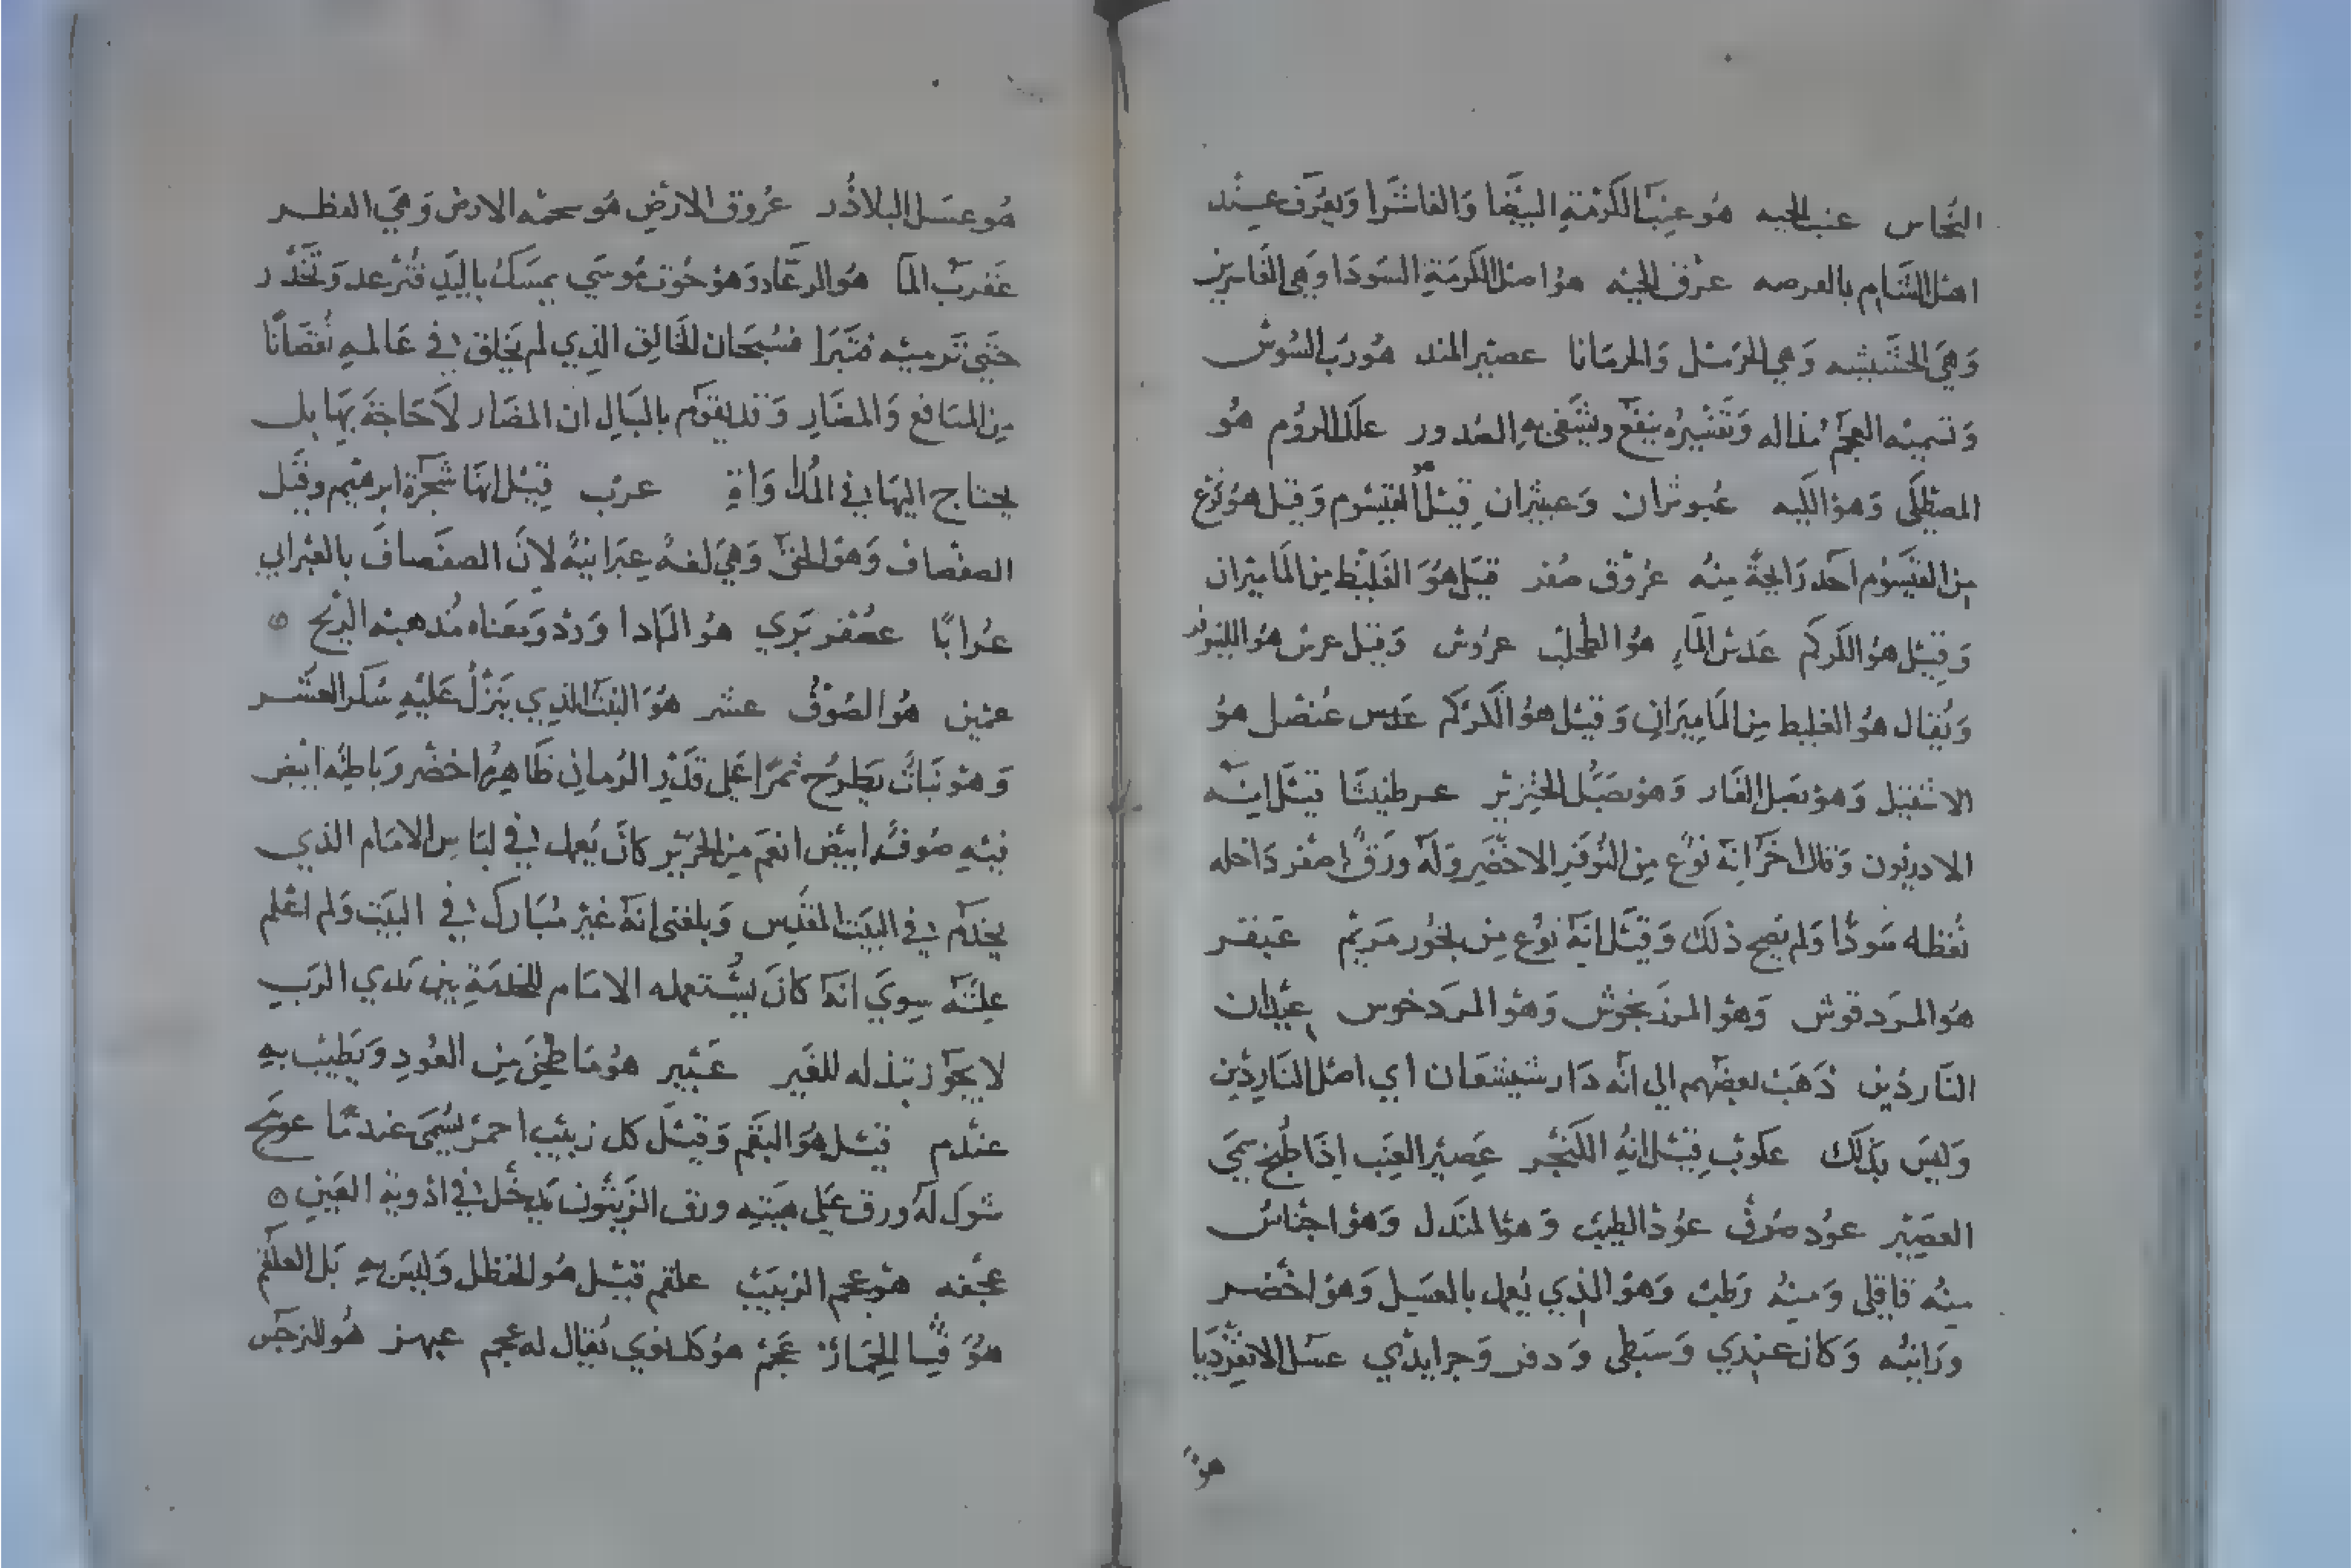 النحاس عنب الحيه هو عنب الكرمة البيضا والفاشرا ويعرف عند
اهل الشام بالعرصه عرق الحيه هو اصل الكرمة السودا وهي الفاسرين
وهي الحشيشه وهي الحرمل والحرمانا عصير المند هو رب السوس
وتسميه العجم مذاله وتقشيره ينفع ويشفي به الصدور علك الروم هو
المصطكي وهو الكيه عبوثران وعبيثران قيل هو القيسوم وقيل هو نوع
من القيسوم احد رايحة منه عروق صفر قيل هو الغليظ من الماميران
وقيل هو الكركم عدس الماء هو الطحلب عروس وقيل عرس هو اللينوفر
ويقال هو الغليظ من الماميران وقيل هو الكركم عدس عنصل هو
الاشقيل وهو بصل الفار وهو بصل الخنزير عرطنيثا قيل انه
الادريون وقال اخر انه نوع من النوفر الاخضر وله ورق اصفر داخله
نقطه سودا ولم يصح ذلك وقيل انه نوع من بخور مريم عبقر
هو المردقوش وهو المرزنجوش وهو المردخوس عيدان
الناردين ذهب بعضهم الي انه دار شيشعان اي اصل الناردين
وليس بذلك عكوب قيل انه الكنجر عصير العنب اذا طبخ سمي
العصير عود صرف عود الطيب وهو المندل وهو اجناس
منه قاقلي ومنه رطب وهو الذي يعمل بالعسل وهو اخضر
ورانبه وكان عندي وسبطي ودفر وجرايدي عسل الانقرديا
هو
هو عسل البلاذر عروق الارض هو سحمه الارض وهي القطر
عقرب الما هو الرعاد وهو حوت موسي يمسك باليد فترعد وتخدر
حتي ترميه متبرا فسبحان الخالق الذي لم يخلق في عالمه نقصانا
من المنافع والمضار وقد يقوم بالبال ان المضار لا حاجة بها بل
يحتاج اليها في عرب قيل انها شجرة ابرهيم وقيل
الصفصاف وهو وهي لغه عبرانيه لان الصفصاف بالعبراني
عرابا عصفر بري هو المادا ورد ومعناه مذهبه الريح
عمين هو الصوف عشر هو النبت الذي ينزل عليه سكر العشر
وهو نبات يطرح ثمرا علي قدر الرمان ظاهره اخضر وباطنه ابيض
فيه صوف ابيض انعم من الحرير كان يعمل في لباس الامام الذي
يخدم في البيت المقدس وبلغني انه غير مبارك في البيت ولم اعلم
علته سوي انه كان يستعمله الامام للخدمة بين يدي الرب
لا يجوز تبذله للغير عبير هو ما طحن من العود ويطيب به
عندم قيل هو البقم وقيل كل زبيب احمر يسمي عندما عوسج
شوك له ورق علي هيئيه ورق الزيتون يدخل في ادوية العين
عجفه هو عجم الزبيب علقم قيل هو الحنظل وليس به بل العلقم
هو قثا الحمار عجم هو كل نوي يقال له عجم عبهر هو النرجس